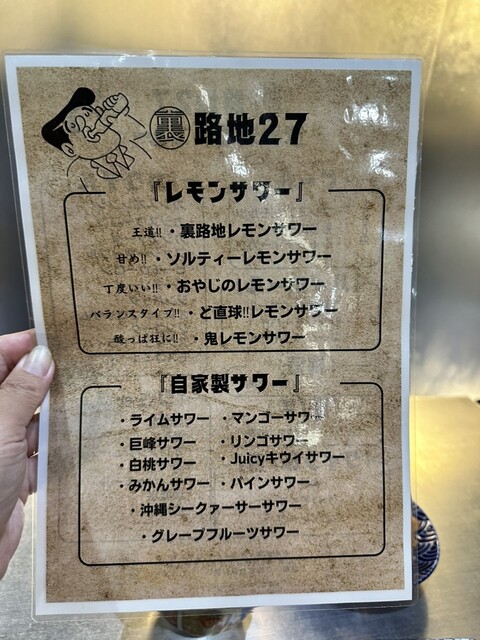 裏 路地27
『レモンサワー』
王道!!・裏路地レモンサワー
甘め!!・ソルティーレモンサワー
丁度いい!!・おやじのレモンサワー
バランスタイプ!!・ど直球!!レモンサワー
酸っぱ狂に!!・鬼レモンサワー
『自家製サワー』
・ライムサワー ・マンゴーサワー
・巨峰サワー ・リンゴサワー
・白桃サワー ・Juicyキウイサワー
・みかんサワー ・パインサワー
・沖縄シークァーサーサワー
・グレープフルーツサワー